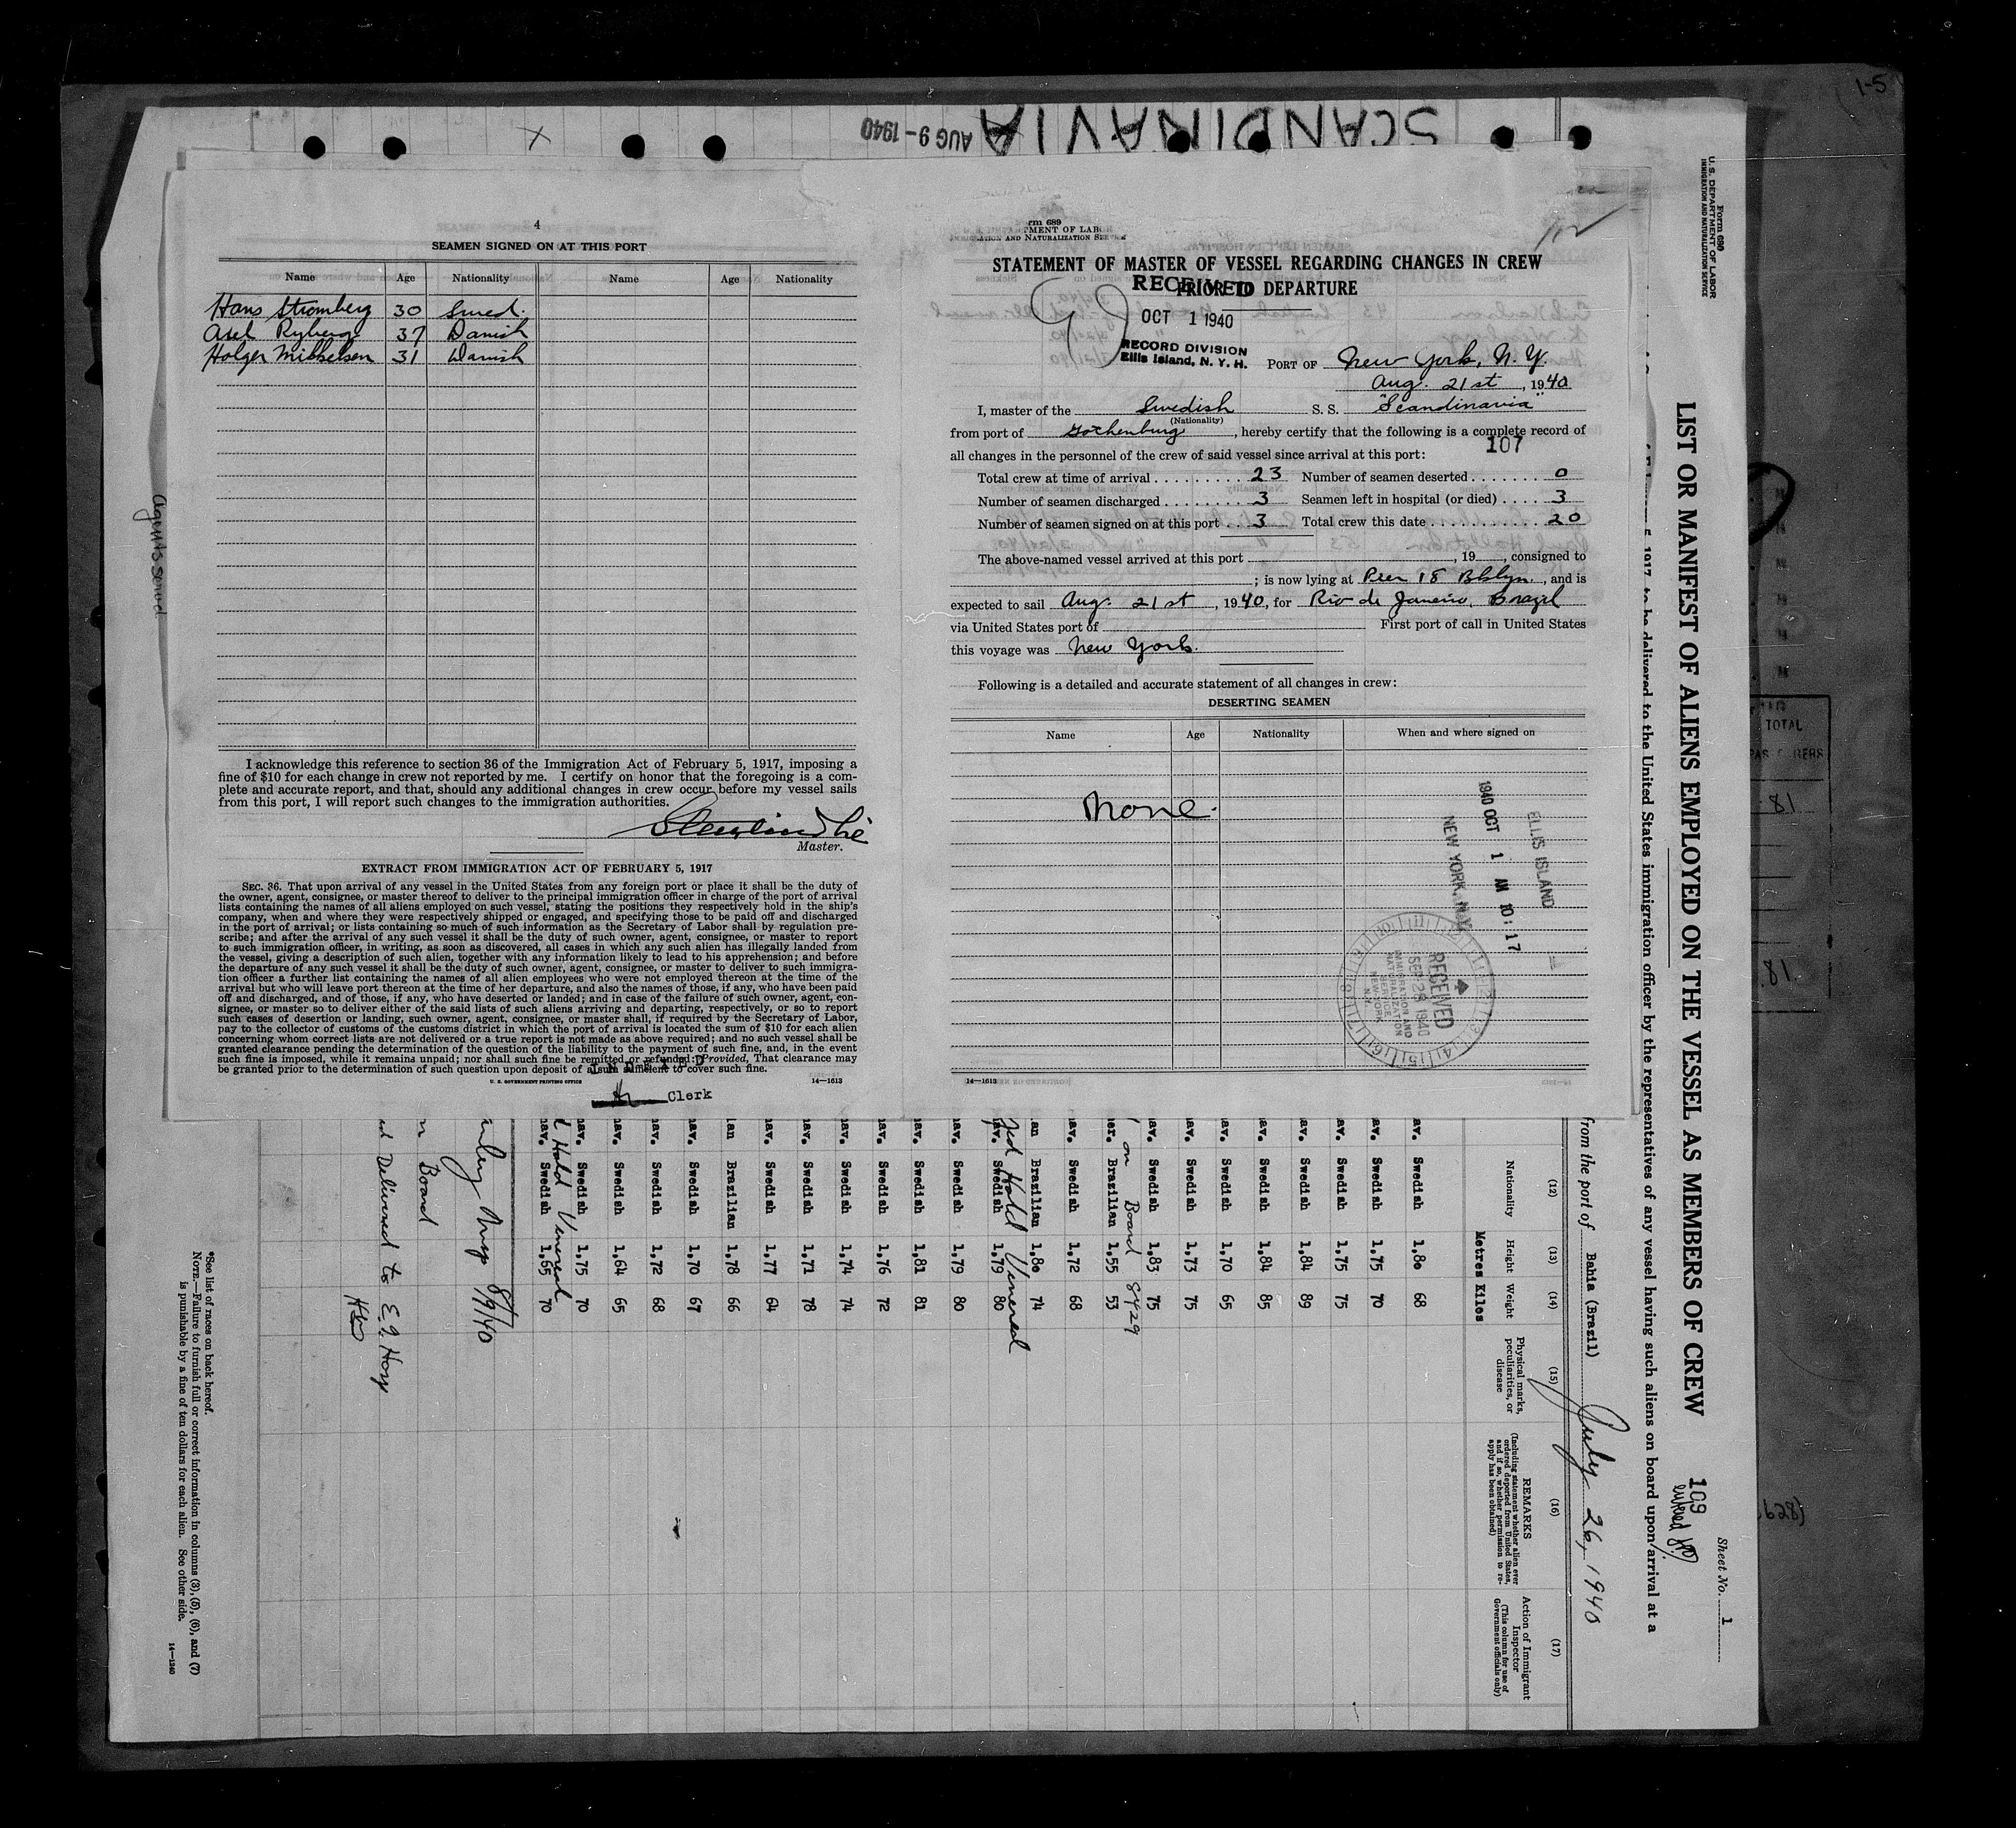 1-5
SCANDINAVIA
AUG 9 - 1940
X
4
SEAMEN SIGNED ON AT THIS PORT
Name Age Nationality Name Age Nationality
Hans Stromberg 30 Swed.
Axel Ryberg 37 Danish
Holger Mikkelsen 31 Danish
I acknowledge this reference to section 36 of the Immigration Act of February 5, 1917, imposing a
fine of $10 for each change in crew not reported by me. I certify on honor that the foregoing is a com-
plete and accurate report, and that, should any additional changes in crew occur before my vessel sails
from this port, I will report such changes to the immigration authorities.
Master.
EXTRACT FROM IMMIGRATION ACT OF FEBRUARY 5, 1917
SEC. 36. That upon arrival of any vessel in the United States from any foreign port or place it shall be the duty of
the owner, agent, consignee, or master thereof to deliver to the principal immigration officer in charge of the port of arrival
lists containing the names of all aliens employed on such vessel, stating the positions they respectively hold in the ship's
company, when and where they were respectively shipped or engaged, and specifying those to be paid off and discharged
in the port of arrival; or lists containing so much of such information as the Secretary of Labor shall by regulation pre-
scribe; and after the arrival of any such vessel it shall be the duty of such owner, agent, consignee, or master to report
to such immigration officer, in writing, as soon as discovered, all cases in which any such alien has illegally landed from
the vessel, giving a description of such alien, together with any information likely to lead to his apprehension; and before
the departure of any such vessel it shall be the duty of such owner, agent, consignee, or master to deliver to such immigra-
tion officer a further list containing the names of all alien employees who were not employed thereon at the time of the
arrival but who will leave port thereon at the time of her departure, and also the names of those, if any, who have been paid
off and discharged, and of those, if any, who have deserted or landed; and in case of the failure of such owner, agent, con-
signee, or master so to deliver either of the said lists of such aliens arriving and departing, respectively, or so to report
such cases of desertion or landing, such owner, agent, consignee, or master shall, if required by the Secretary of Labor,
pay to the collector of customs of the customs district in which the port of arrival is located the sum of $10 for each alien
concerning whom correct lists are not delivered or a true report is not made as above required; and no such vessel shall be
granted clearance pending the determination of the question of the liability to the payment of such fine, and, in the event
such fine is imposed, while it remains unpaid; nor shall such fine be remitted or refunded: Provided, That clearance may
be granted prior to the determination of such question upon deposit of a sum sufficient to cover such fine.
U. S. GOVERNMENT PRINTING OFFICE 14—1613
Clerk
rm 689
MENT OF LABOR
IMMIGRATION AND NATURALIZATION SERVICE
STATEMENT OF MASTER OF VESSEL REGARDING CHANGES IN CREW
PRIOR TO DEPARTURE
RECEIVED
OCT 1 1940
RECORD DIVISION
Ellis Island, N. Y. H.
PORT OF New York, N. Y.
Aug. 21st, 1940
I, master of the Swedish S. S. "Scandinavia"
(Nationality)
from port of Gothenburg, hereby certify that the following is a complete record of
107
all changes in the personnel of the crew of said vessel since arrival at this port:
Total crew at time of arrival 23 Number of seamen deserted 0
Number of seamen discharged 3 Seamen left in hospital (or died) 3
Number of seamen signed on at this port 3 Total crew this date 20
The above-named vessel arrived at this port , 19 , consigned to
; is now lying at Pier 18 Bklyn., and is
expected to sail Aug. 21st, 1940, for Rio de Janeiro, Brazil
via United States port of First port of call in United States
this voyage was New York.
Following is a detailed and accurate statement of all changes in crew:
DESERTING SEAMEN
Name Age Nationality When and where signed on
None.
ELLIS ISLAND
1940 OCT 1 AM 10:17
NEW YORK, N.Y.
RECEIVED
SEP 28 1940
IMMIGRATION AND
NATURALIZATION
SERVICE
NEW YORK
N.Y.
14—1613
Form 689
U. S. DEPARTMENT OF LABOR
IMMIGRATION AND NATURALIZATION SERVICE
Sheet No. 1
109
LIST OR MANIFEST OF ALIENS EMPLOYED ON THE VESSEL AS MEMBERS OF CREW
5, 1917, to be delivered to the United States immigration officer by the representatives of any vessel having such aliens on board upon arrival at a
from the port of Bahia (Brazil) July 26, 1940
(12) (13) (14) (15) (16) (17)
Nationality Height Weight Physical marks, peculiarities, or disease
REMARKS
(Including statement whether alien ever ordered deported from United States, and if so, whether permission to reapply has been obtained)
Action of Immigrant Inspector
(This column for use of Government officials only)
Metres Kilos
av. Swedish 1,80 68
av. Swedish 1,75 70
av. Swedish 1,75 75
av. Swedish 1,84 89
av. Swedish 1,84 85
av. Swedish 1,70 65
av. Swedish 1,73 75
av. Swedish 1,83 75
on Board 8429
mer. Brazilian 1,55 53
av. Swedish 1,72 68
an Brazilian 1,80 74
Hold Venereal
av. Swedish 1,79 80
av. Swedish 1,79 80
av. Swedish 1,81 81
av. Swedish 1,76 72
av. Swedish 1,74 74
av. Swedish 1,71 78
av. Swedish 1,77 64
lan Brazilian 1,78 66
av. Swedish 1,70 67
av. Swedish 1,72 68
av. Swedish 1,64 65
av. Swedish 1,75 70
Hold Venereal
av. Swedish 1,65 70
Insp 8/9/40
Board
Delivered to E.I. Hosp
*See list of races on back hereof.
NOTE.—Failure to furnish full or correct information in columns (3), (5), (6), and (7)
is punishable by a fine of ten dollars for each alien. See other side.
14—1240
Agents served
TOTAL
81
81